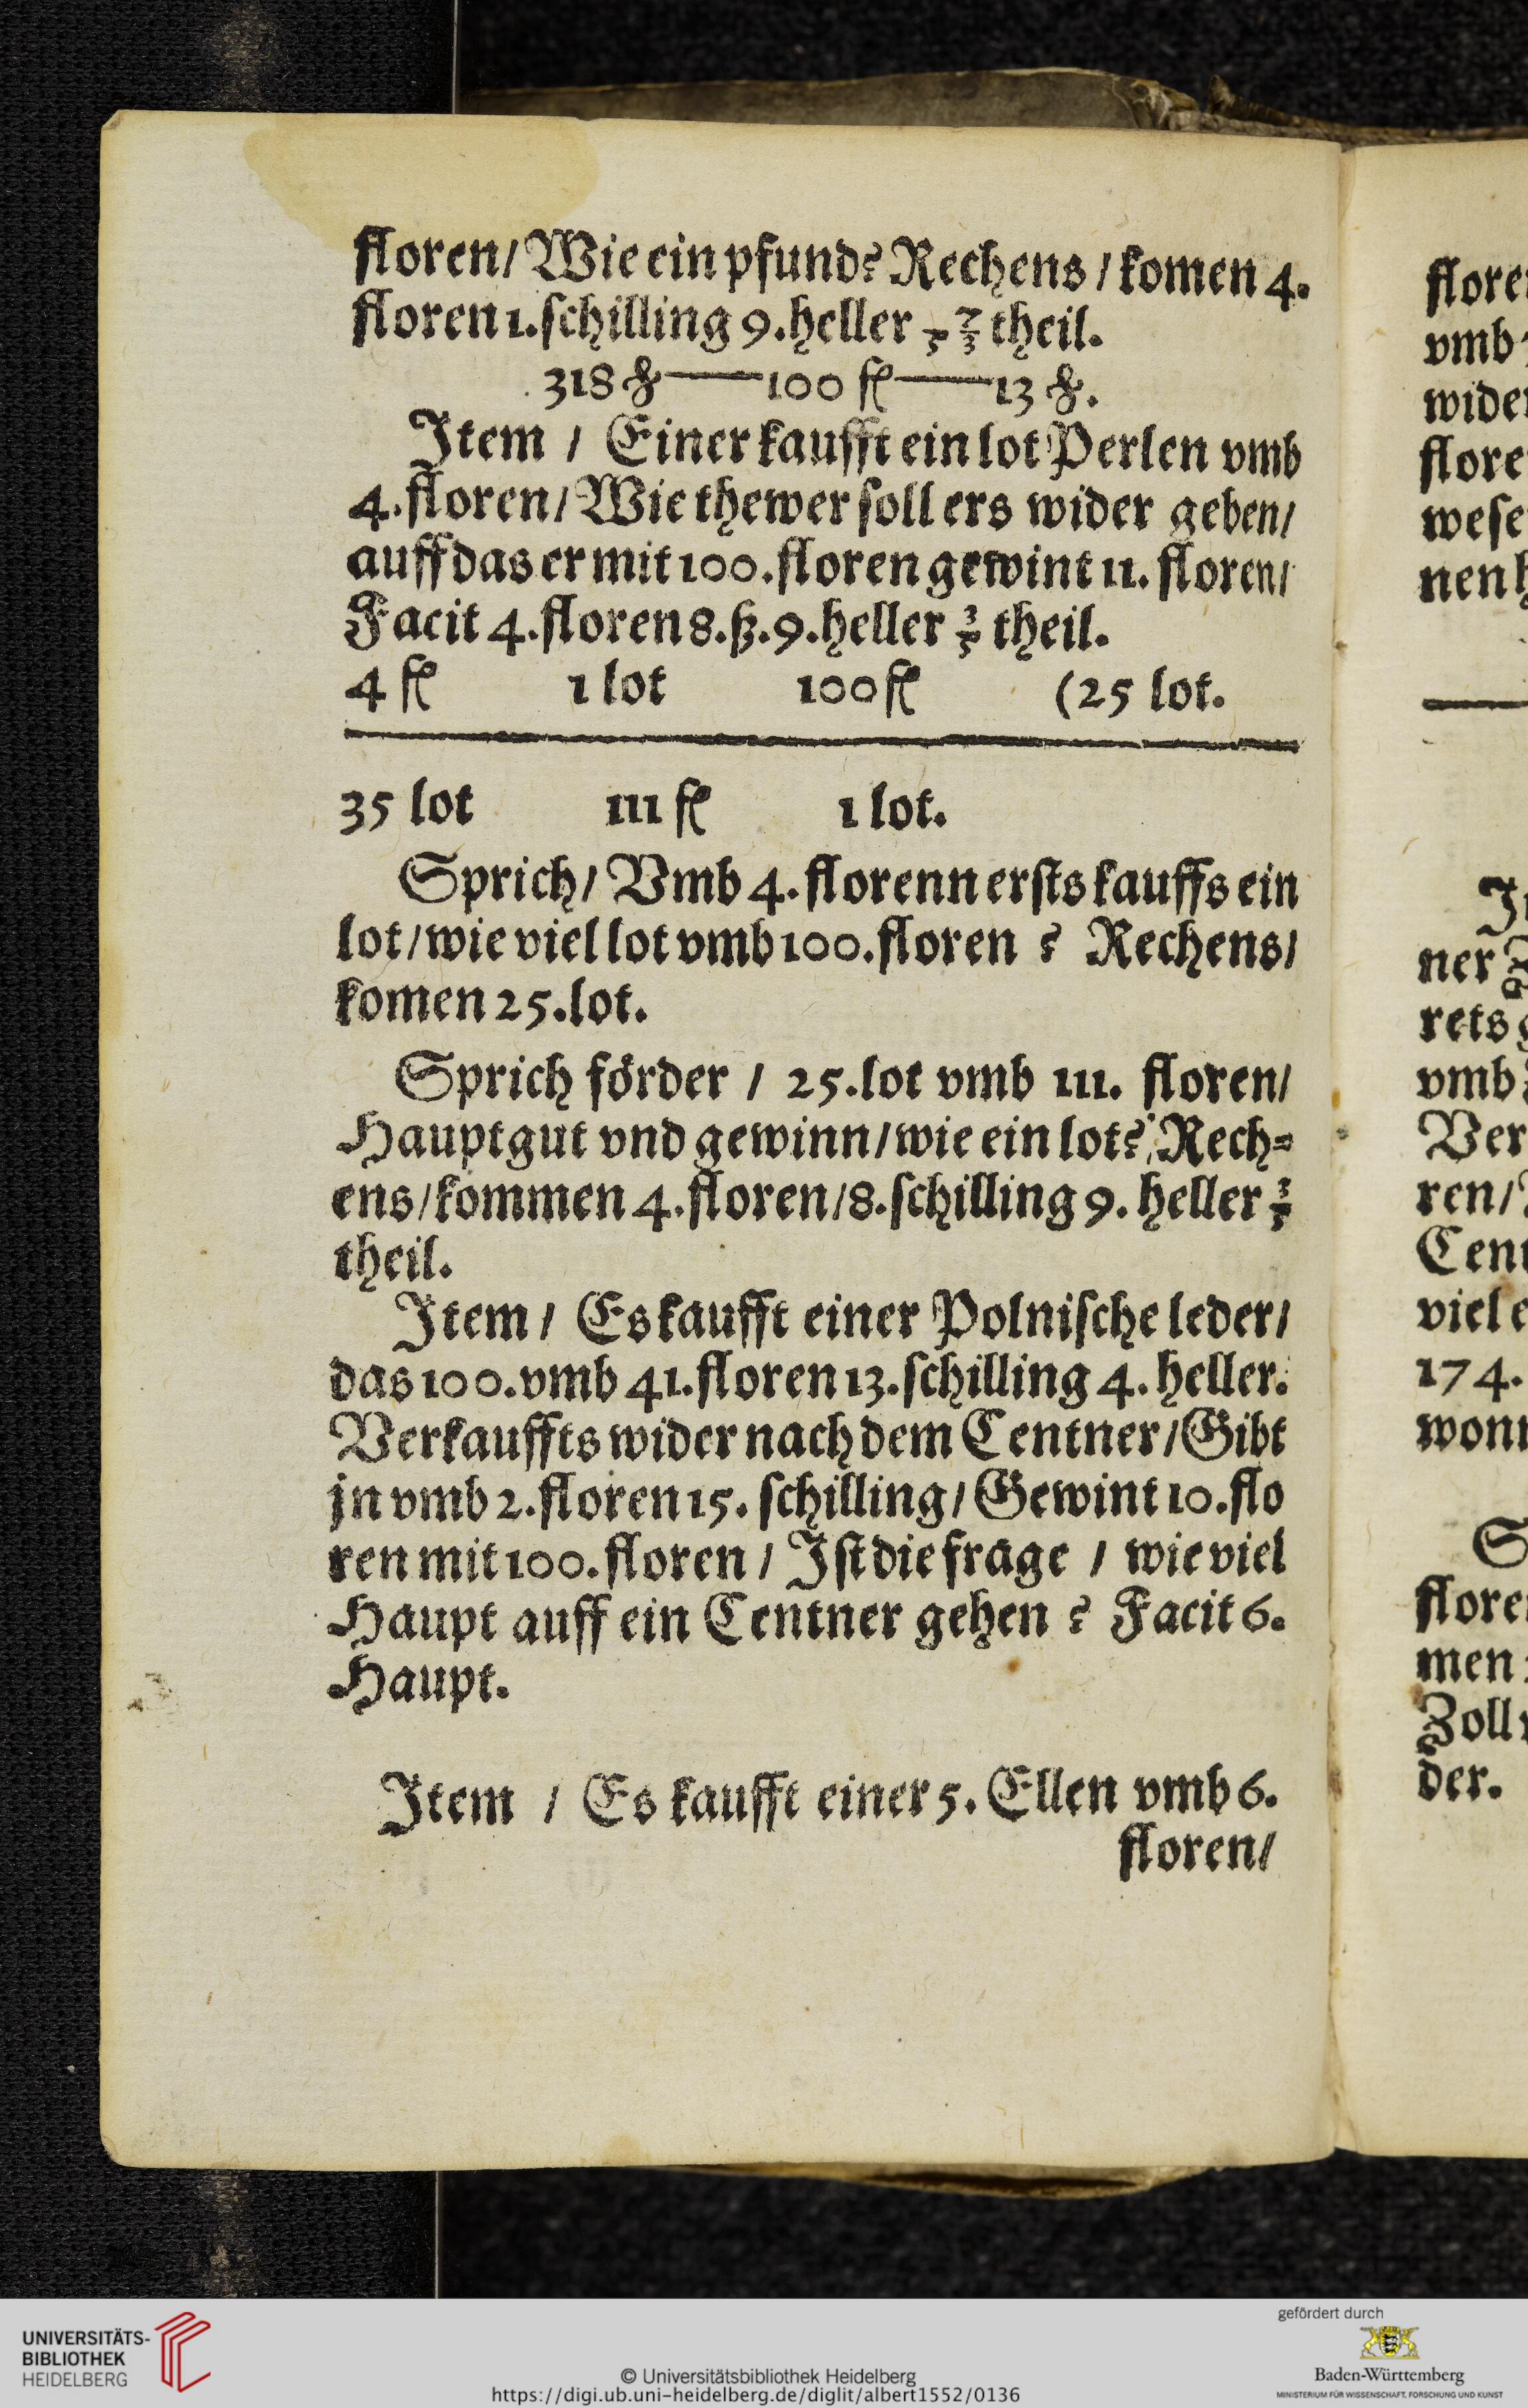 floren/ Wie ein pfund? Rechens / komen 4.
floren 1. schilling 9. heller theil.
318 ℔——100 fl——13 ℔.
Item / Einer kaufft ein lot Perlen vmb
4. floren/ Wie thewer soll ers wider geben/
auff das er mit 100. floren gewint 11. floren/
Facit 4. floren 8. ß. 9. heller 3/5 theil.
4 fl 1 lot 100 fl (25 lot.
35 lot 111 fl 1 lot.
Sprich/ Vmb 4. florenn ersts kauffs ein
lot/ wie viel lot vmb 100. floren ? Rechens/
komen 25. lot.
Sprich förder / 25. lot vmb 111. floren/
Hauptgut vnd gewinn/ wie ein lot? Rech⸗
ens/ kommen 4. floren/ 8. schilling 9. heller 3/5
theil.
Item / Es kaufft einer Polnische leder/
das 100. vmb 41. floren 13. schilling 4. heller.
Verkauffts wider nach dem Centner/ Gibt
jn vmb 2. floren 15. schilling/ Gewint 10. flo
ren mit 100. floren / Ist die frage / wie viel
Haupt auff ein Centner gehen ? Facit 6.
Haupt.
Item / Es kaufft einer 5. Ellen vmb 6.
floren/
flore
vmb
wider
flore
wese
nen
ner
rets
vmb
Ver
ren/
Cent
viel e
174.
wonn
S
flore
men
Zoll
der.
UNIVERSITÄTS-
BIBLIOTHEK
HEIDELBERG
© Universitätsbibliothek Heidelberg
https://digi.ub.uni-heidelberg.de/diglit/albert1552/0136
gefördert durch
Baden-Württemberg
MINISTERIUM FÜR WISSENSCHAFT, FORSCHUNG UND KUNST